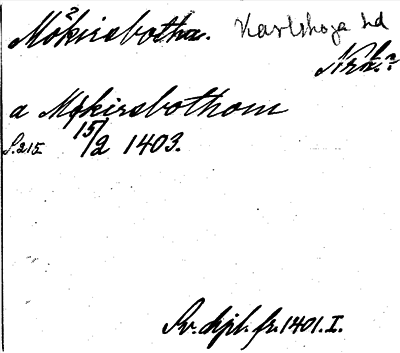 Mökirsbotha. Karlskoga hd
Nrk.?
a Mökirsbothom
S. 215 15/2 1403.
Sv. dipl. fr. 1401. I.